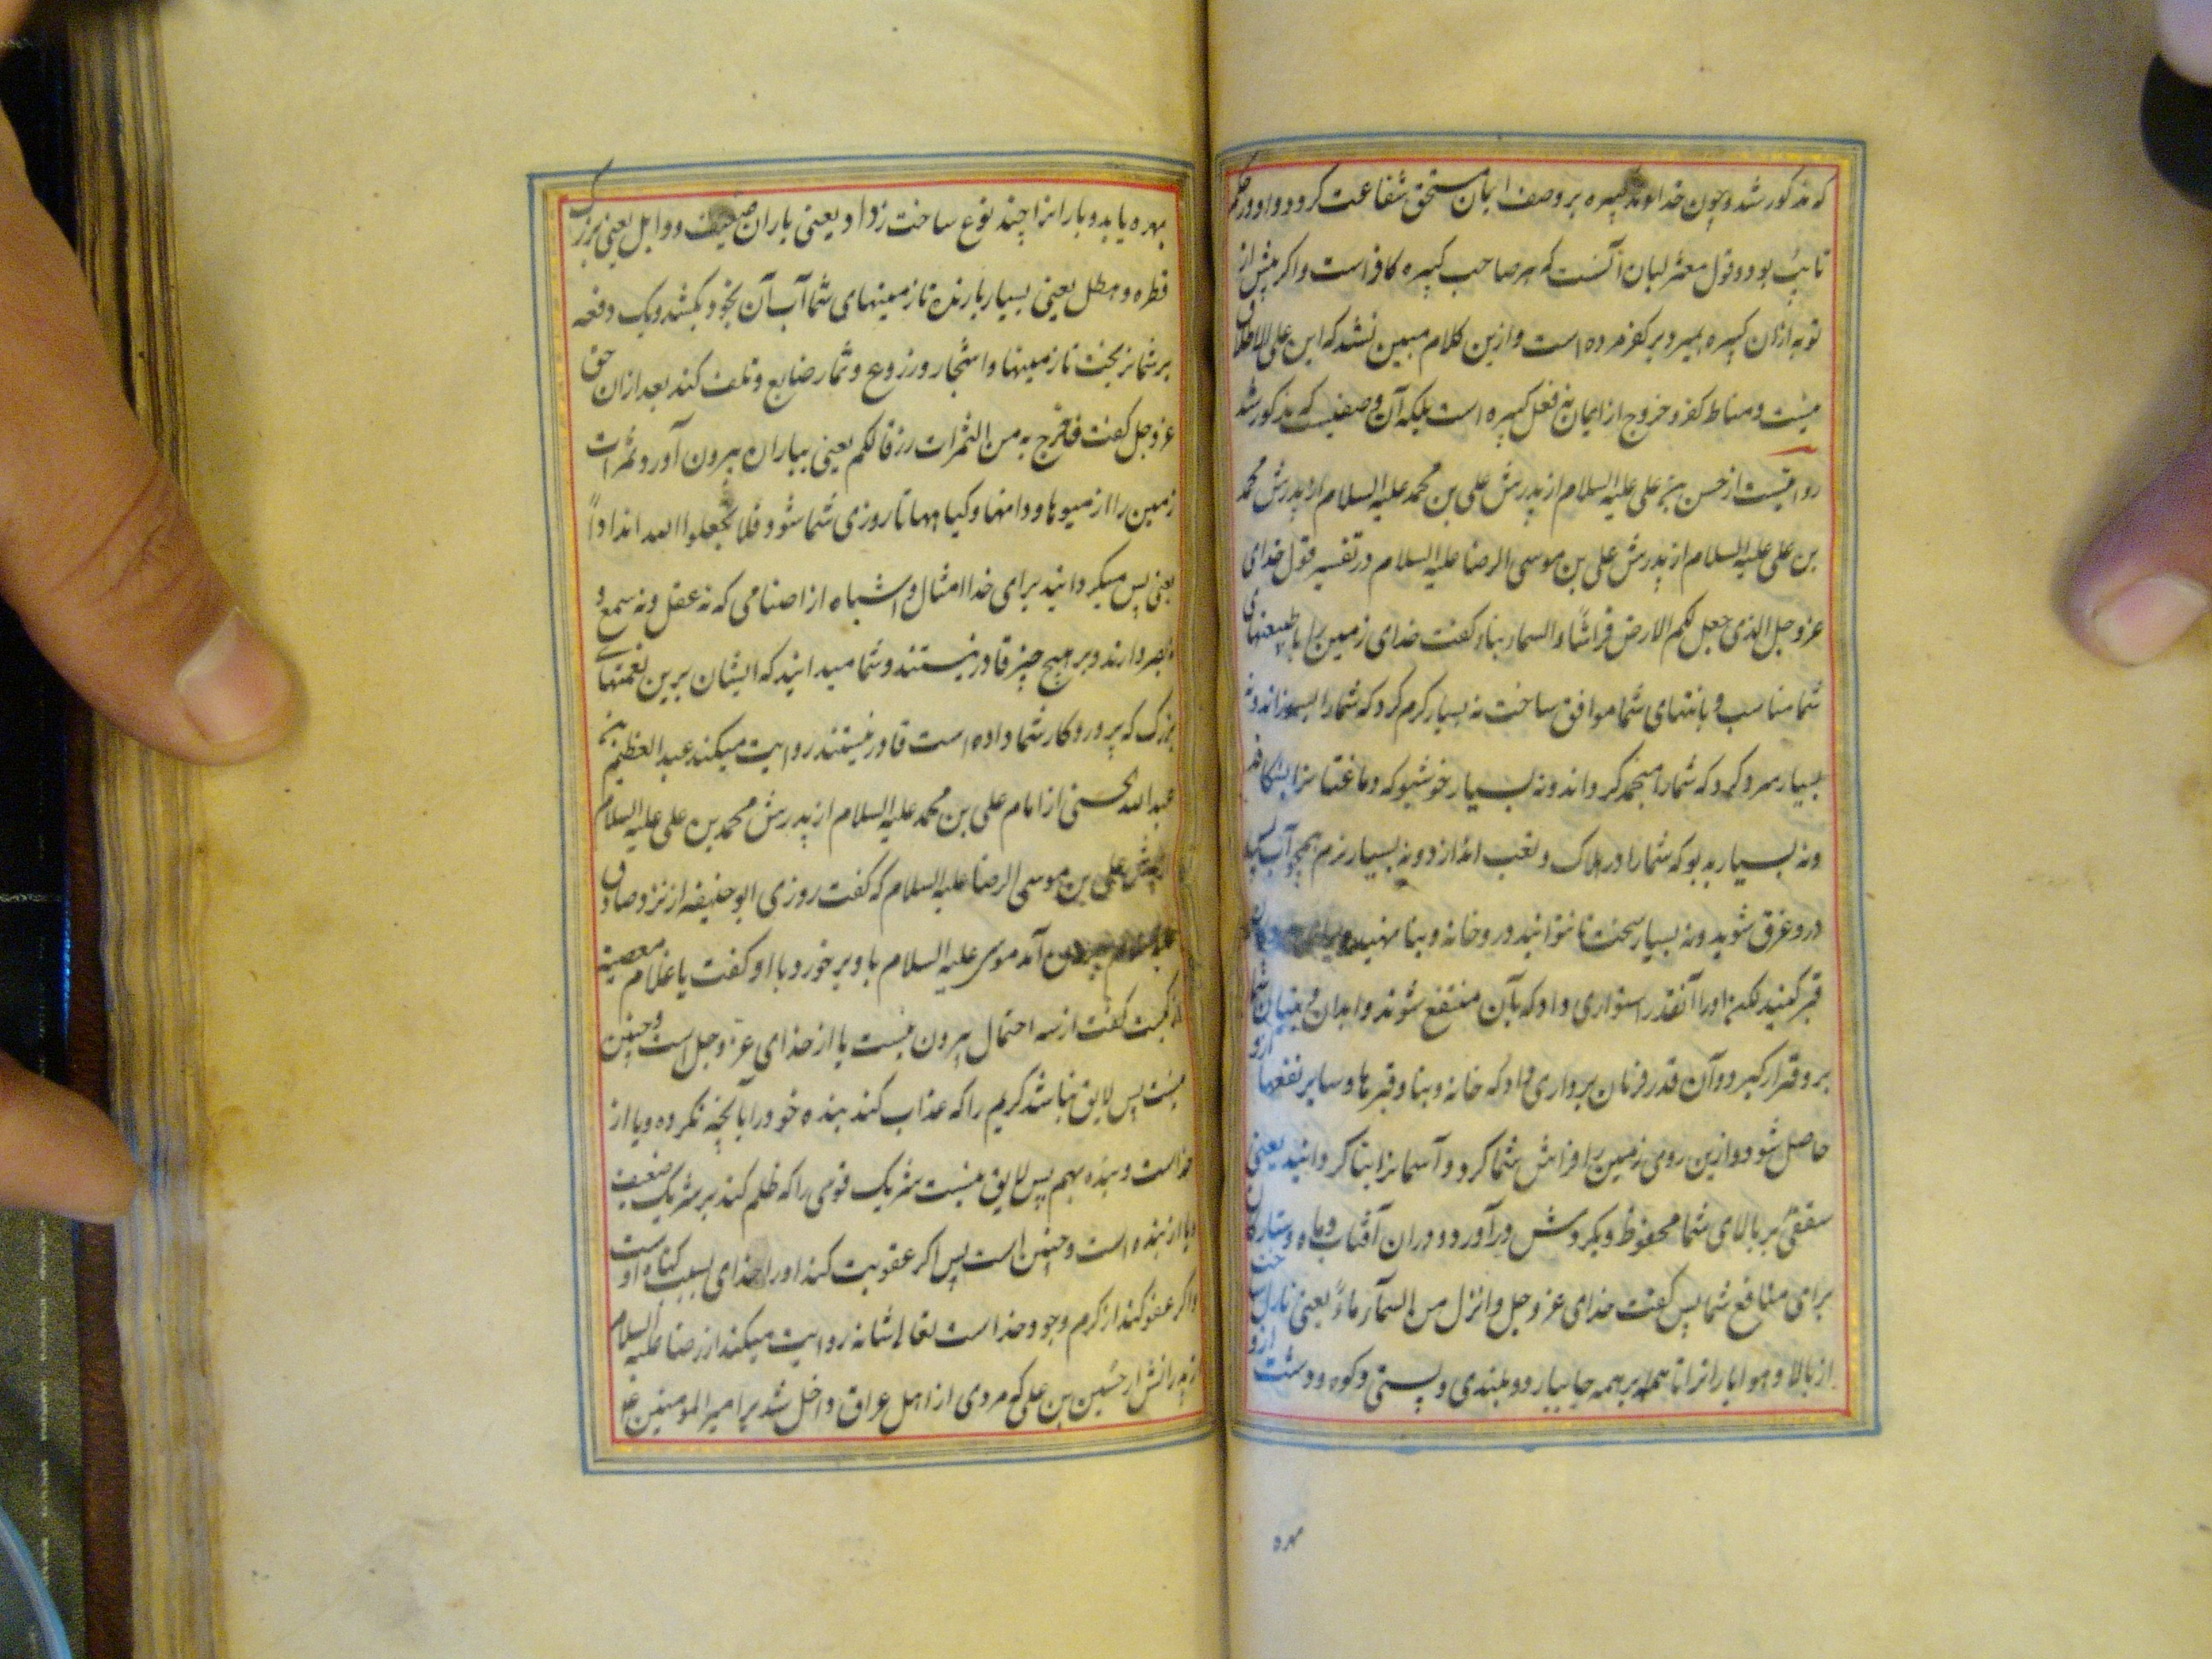 که مذکور شد و چون خداوند کبیره بر وصف ایمان مستحق شفاعت کردد و او در حکم
تایب بود و قول معتزلیان آنست که هر صاحب کبیره کافر است و اکر پیش از
توبه ازان کبیره بمیرد بر کفر مرده است و ازین کلام مبین شد که این علی الاطلاق
نیست و مناط کفر و خروج از ایمان نه فعل کبیره است بلکه آن وصفیست که مذکور شد
روایتست از حسن بن علی علیه السلام از پدرش علی بن محمد علیه السلام از پدرش محمد
بن علی علیه السلام از پدرش علی بن موسی الرضا علیه السلام در تفسیر قول خدای
عز و جل الذی جعل لکم الارض فراشا و السماء بناء کفت خدای زمین را با طبیعتهای
شما مناسب و با تنهای شما موافق ساخت نه بسیار کرم کرد که شما را بسوزاند و نه
بسیار سرد کرد که شما را منجمد کرداند و نه بسیار خوشبو که دماغتان را بشکافد
و نه بسیار بد بو که شما را در هلاک و تعب اندازد و نه بسیار نرم همچو آب که
درو غرق شوید و نه بسیار سخت تا نتوانید درو خانه و بنا نهید و برای
قبر کنید لکن او را آنقدر استواری داد که بآن منتفع شوند و ابدان و بنیان شما
برو قرار کیرد و آن قدر فرمان برداری داد که خانه و بنا و قبرها و سایر نفعها ازو
حاصل شود و ازین روی زمین را فراش شما کرد و آسمانرا بنا کردانید یعنی
سقفی بر بالای شما محفوظ و بکردش درآورد و دران آفتاب و ماه و ستارکان
برای منافع شما پس کفت خدای عز و جل و انزل من السماء ماءً یعنی نازل ساخت
از بالا و هوا بارانرا تا همه بر همه جا ببارد و بلندی و پستی و کوه و دشت ازو
بهره
بهره یابد و بارانرا چند نوع ساخت رذاذ یعنی باران ضعیف و وابل یعنی بزرک
قطره و هطل یعنی بسیار بارنده تا زمینهای شما آب آن بخود بکشد و یک دفعه
بر شما نریخت تا زمینها و اشجار و زروع و ثمار ضایع و تلف کند بعد ازان حق
عز و جل کفت فاخرج به من الثمرات رزقا لکم یعنی بباران بیرون آورد ثمرات
زمین را از میوها و دانها و کیاهها تا روزی شما شود فلا تجعلوا لله اندادا
یعنی پس میکردانید برای خدا امثال و اشباه از اصنامی که نه عقل و نه سمع و
نه بصر دارند و بر هیچ چیز قادر نیستند و شما میدانید که ایشان برین نعمتهای
بزرک که پروردکار شما داده است قادر نیستند روایت میکند عبد العظیم بن
عبد الله الحسنی از امام علی بن محمد علیه السلام از پدرش محمد بن علی علیه السلام
از پدرش علی بن موسی الرضا علیه السلام که کفت روزی ابو حنیفه از نزد صادق
علیه السلام بیرون آمد موسی علیه السلام باو برخورد با او کفت یا غلام معصیة
از کیست کفت از سه احتمال بیرون نیست یا از خدای عز و جل است و چنین
نیست پس لایق نباشد کریم را که عذاب کند بنده خود را بآنچه نکرده و یا از
خداست و بنده بهم پس لایق نیست شریک قوی را که ظلم کند بر شریک ضعیف
و یا از بنده است و چنین است پس اکر عقوبت کند او را خدای بسبب کناه اوست
و اکر عفو کند از کرم و جود خداست تعالی شانه روایت میکند از رضا علیه السلام
از پدرانش از حسین بن علی که مردی از اهل عراق داخل شد بر امیر المومنین علی